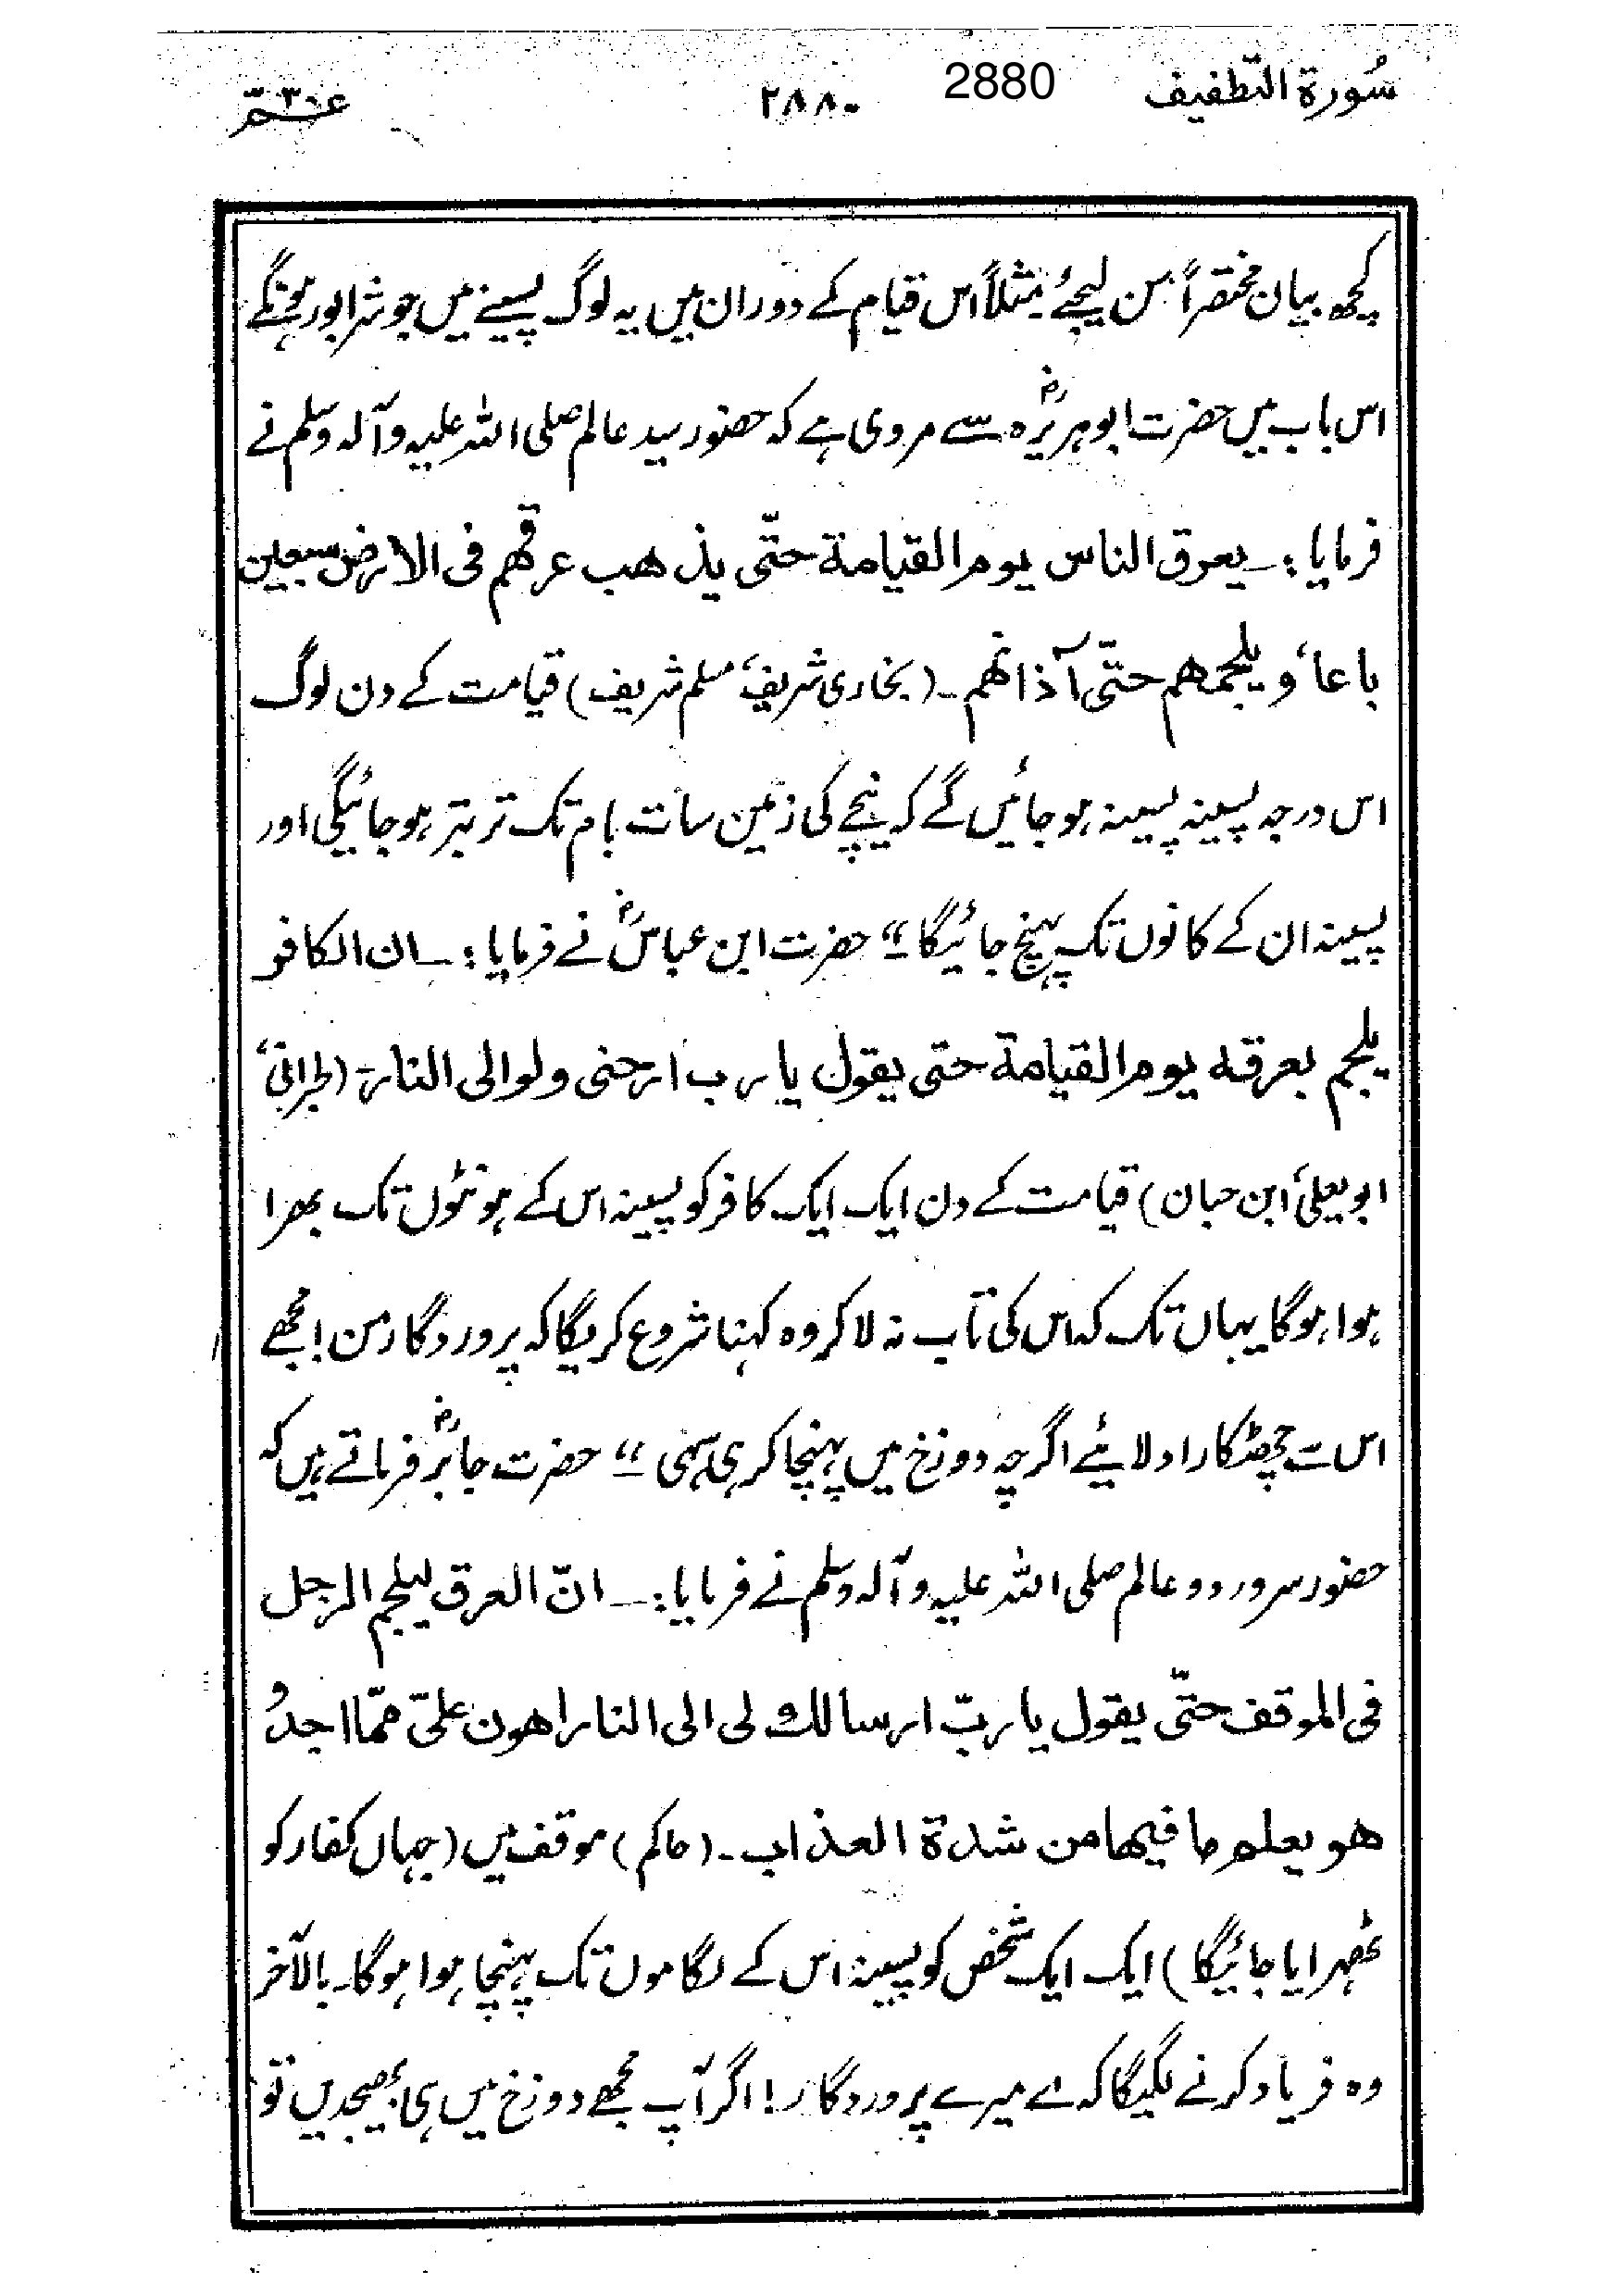 سُورة التّطفيف 2880 ۲۸۸۰ عمّ۳۰
کچھ بیان مختصراً سن لیجئے مثلاً اس قیام کے دوران میں یہ لوگ پسینے میں جو شرابور ہونگے
اس باب میں حضرت ابوہریرہؓ سے مروی ہے کہ حضور سید عالم صلی اللہ علیہ وآلہ وسلم نے
فرمایا:۔ یعرق الناس یوم القیامة حتّٰی یذھب عرقھم فی الارض سبعین
باعاً و یلجمھم حتّٰی آذانھم۔ (بخاری شریف، مسلم شریف) قیامت کے دن لوگ
اس درجہ پسینہ پسینہ ہوجائیں گے کہ نیچے کی زمین سات بام تک تربتر ہوجائیگی اور
پسینہ ان کے کانوں تک پہنچ جائیگا۔" حضرت ابن عباسؓ نے فرمایا:۔ ان الکافر
یلجم بعرقہ یوم القیامة حتی یقول یا رب ارحنی ولو الی النار۔ (طبرانی،
ابویعلیٰ، ابن حبان) قیامت کے دن ایک ایک کافر کو پسینہ اس کے ہونٹوں تک بھرا
ہوا ہوگا یہاں تک کہ اس کی تاب نہ لاکر وہ کہنا شروع کریگا کہ پروردگار من! مجھے
اس سے چھٹکارا دلائیے اگرچہ دوزخ میں پہنچا کر ہی سہی۔" حضرت جابرؓ فرماتے ہیں کہ
حضور سرور دو عالم صلی اللہ علیہ وآلہ وسلم نے فرمایا:۔ انّ العرق لیلجم الرجل
فی الموقف حتّٰی یقول یا ربّ ارسالك لی الی النار اھون علیّ ممّا اجدُ و
ھو یعلم ما فیھا من شدة العذاب۔ (حاکم) موقف میں (جہاں کفار کو
ٹھہرایا جائیگا) ایک ایک شخص کو پسینہ اس کے لگاموں تک پہنچا ہوا ہوگا۔ بالآخر
وہ فریاد کرنے لگیگا کہ اے میرے پروردگار! اگر آپ مجھے دوزخ میں ہی بھیجدیں تو